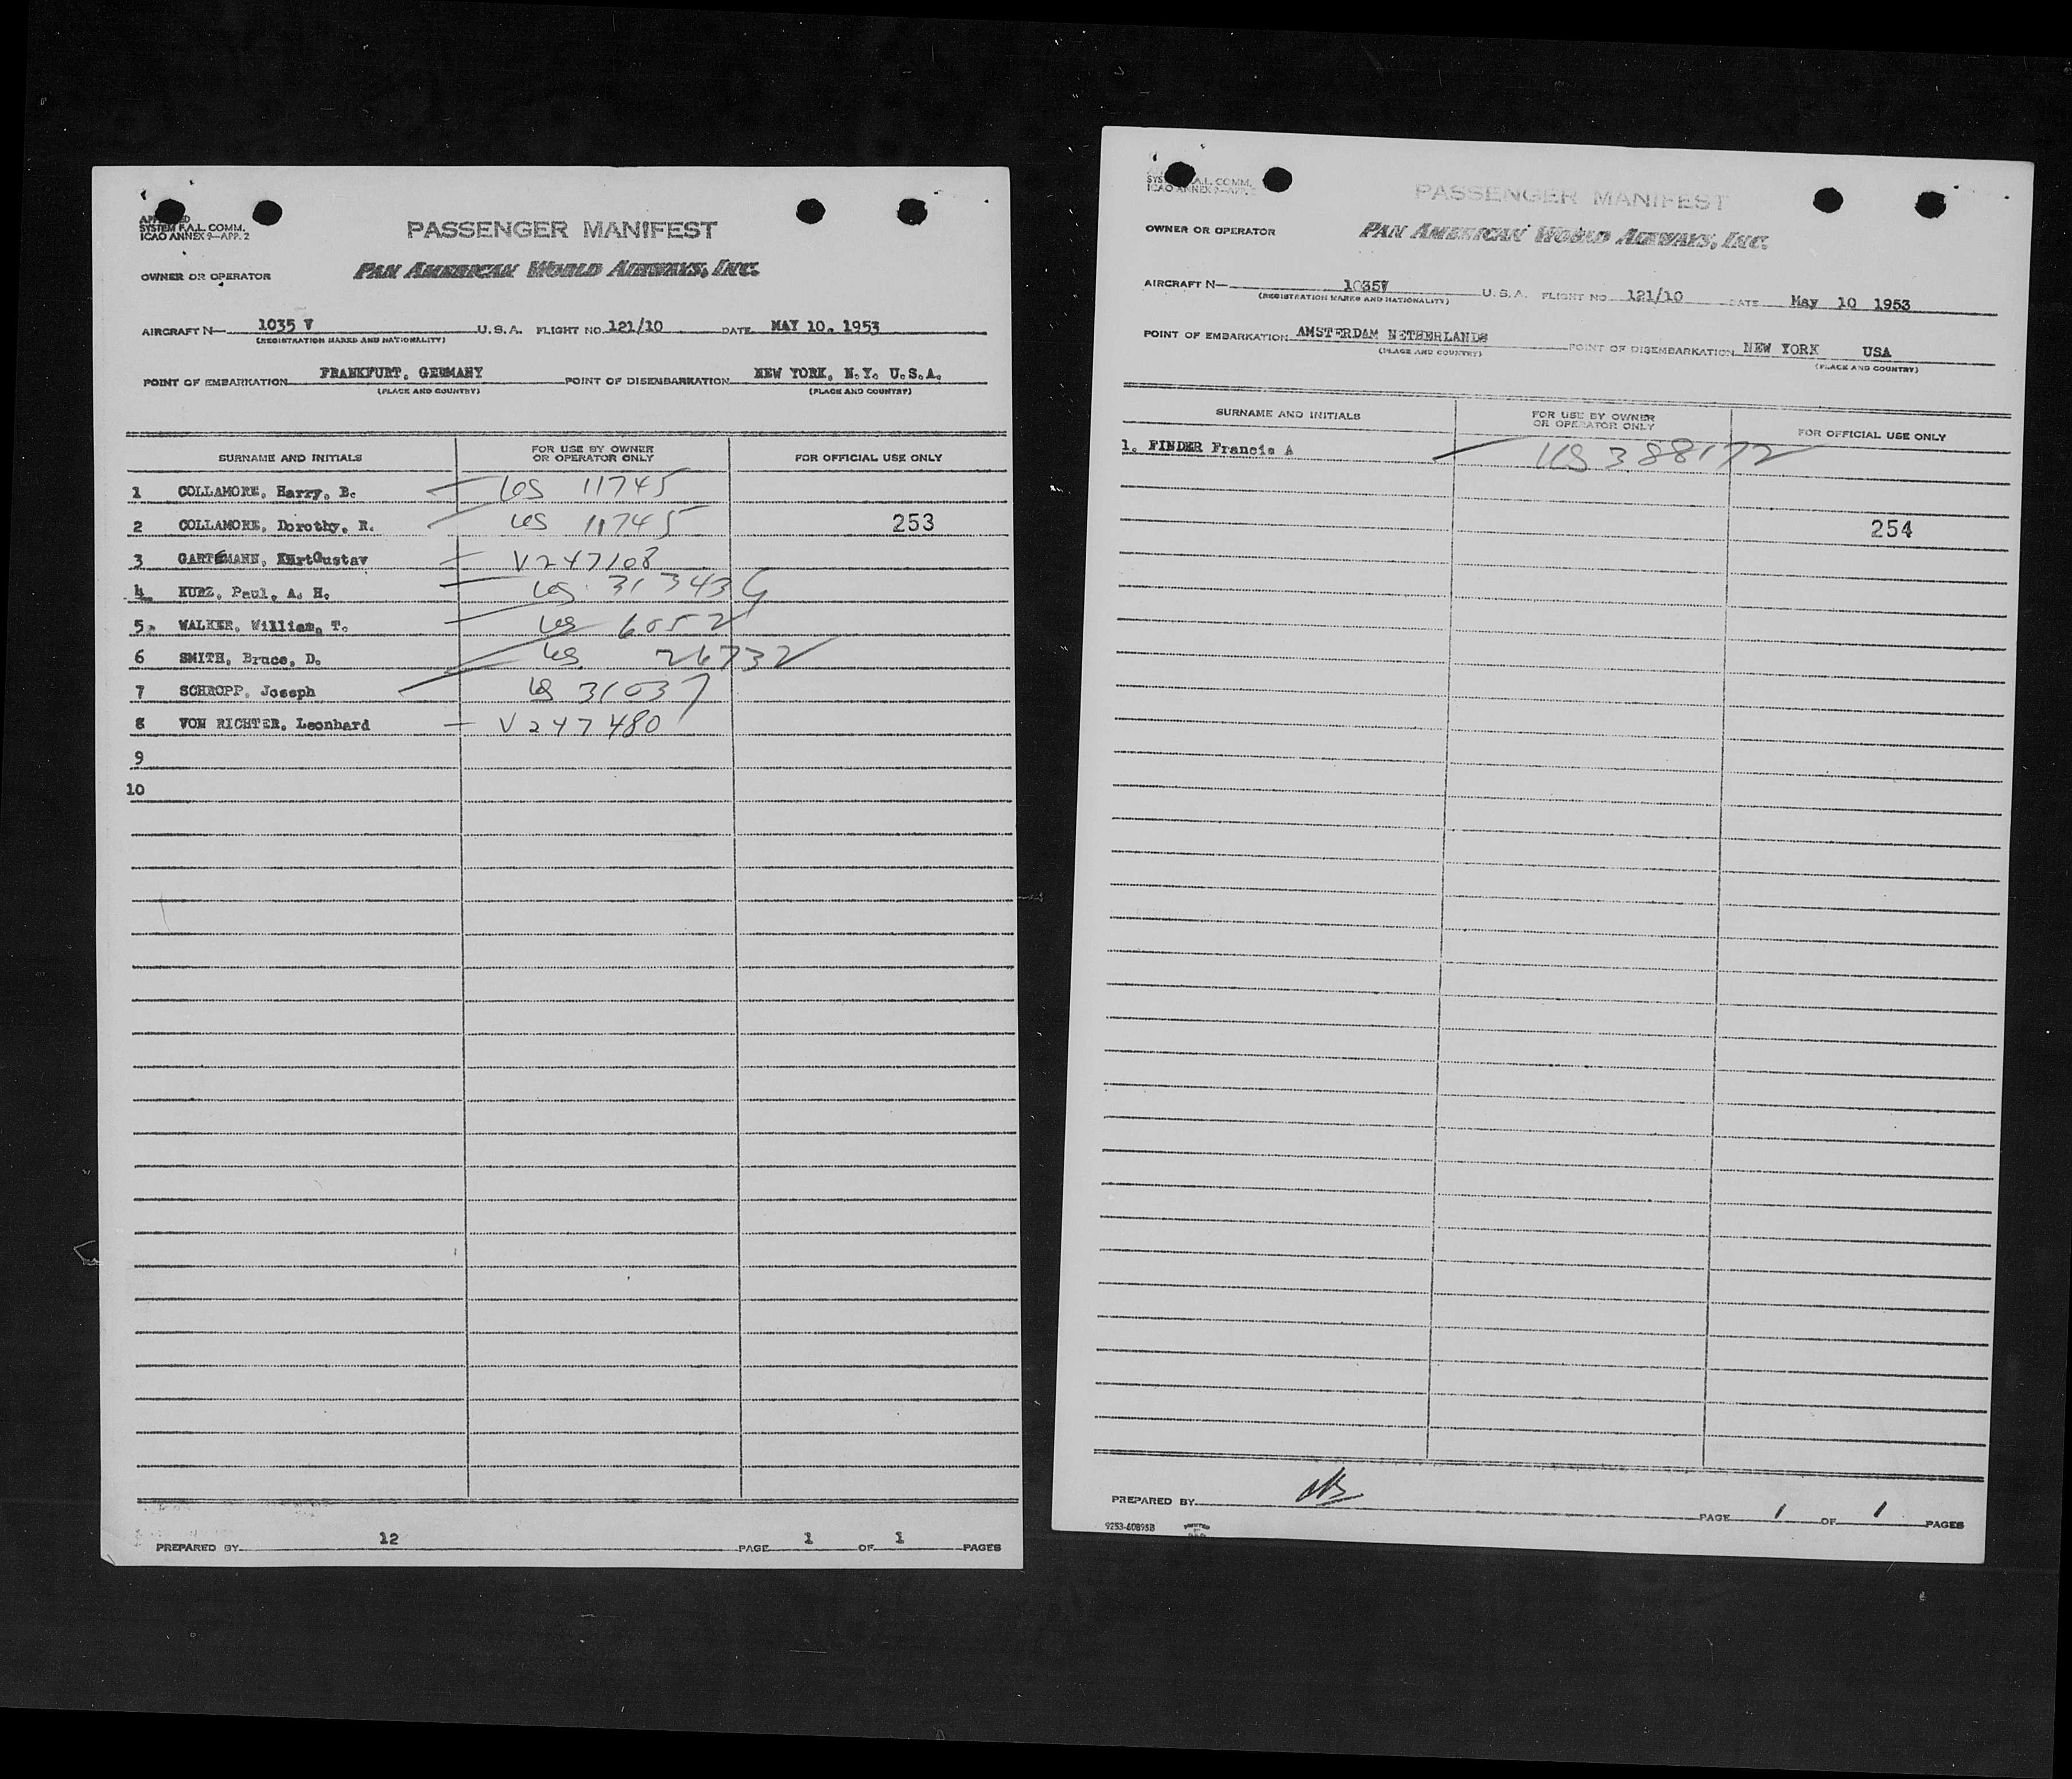 APPROVED
SYSTEM F.A.L. COMM.
ICAO ANNEX 9—APP. 2
PASSENGER MANIFEST
OWNER OR OPERATOR
PAN AMERICAN WORLD AIRWAYS, INC.
AIRCRAFT N— 1035 V U.S.A. FLIGHT NO. 121/10 DATE MAY 10, 1953
(REGISTRATION MARKS AND NATIONALITY)
POINT OF EMBARKATION FRANKFURT, GERMANY POINT OF DISEMBARKATION NEW YORK, N.Y. U.S.A.
(PLACE AND COUNTRY) (PLACE AND COUNTRY)
SURNAME AND INITIALS FOR USE BY OWNER OR OPERATOR ONLY FOR OFFICIAL USE ONLY
1 COLLAMORE, Harry, B. US 11745
2 COLLAMORE, Dorothy, R. US 11745 253
3 GARTEMANN, KurtGustav V247108
4 KURZ, Paul, A. H. US 31343G
5. WALKER, William, T. US 6052
6 SMITH, Bruce, D. US 26732
7 SCHROPP, Joseph US 31037
8 VON RICHTER, Leonhard V247480
9
10
PREPARED BY 12 PAGE 1 OF 1 PAGES
SYSTEM F.A.L. COMM.
ICAO ANNEX 9—APP. 2
PASSENGER MANIFEST
OWNER OR OPERATOR PAN AMERICAN WORLD AIRWAYS, INC.
AIRCRAFT N— 1035V U.S.A. FLIGHT NO. 121/10 DATE May 10 1953
(REGISTRATION MARKS AND NATIONALITY)
POINT OF EMBARKATION AMSTERDAM NETHERLANDS POINT OF DISEMBARKATION NEW YORK USA
(PLACE AND COUNTRY) (PLACE AND COUNTRY)
SURNAME AND INITIALS FOR USE BY OWNER OR OPERATOR ONLY FOR OFFICIAL USE ONLY
1. FINDER Francis A US 388172
254
PREPARED BY PAGE 1 OF 1 PAGES
9253-60895B